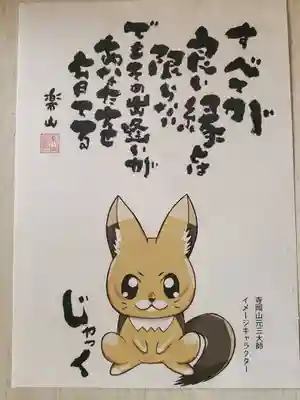 すべてが
良い縁とは
限らない
でもその出逢いが
あなたを
育てる
楽山
じゃっく
寺岡山元三大師
イメージキャラクター